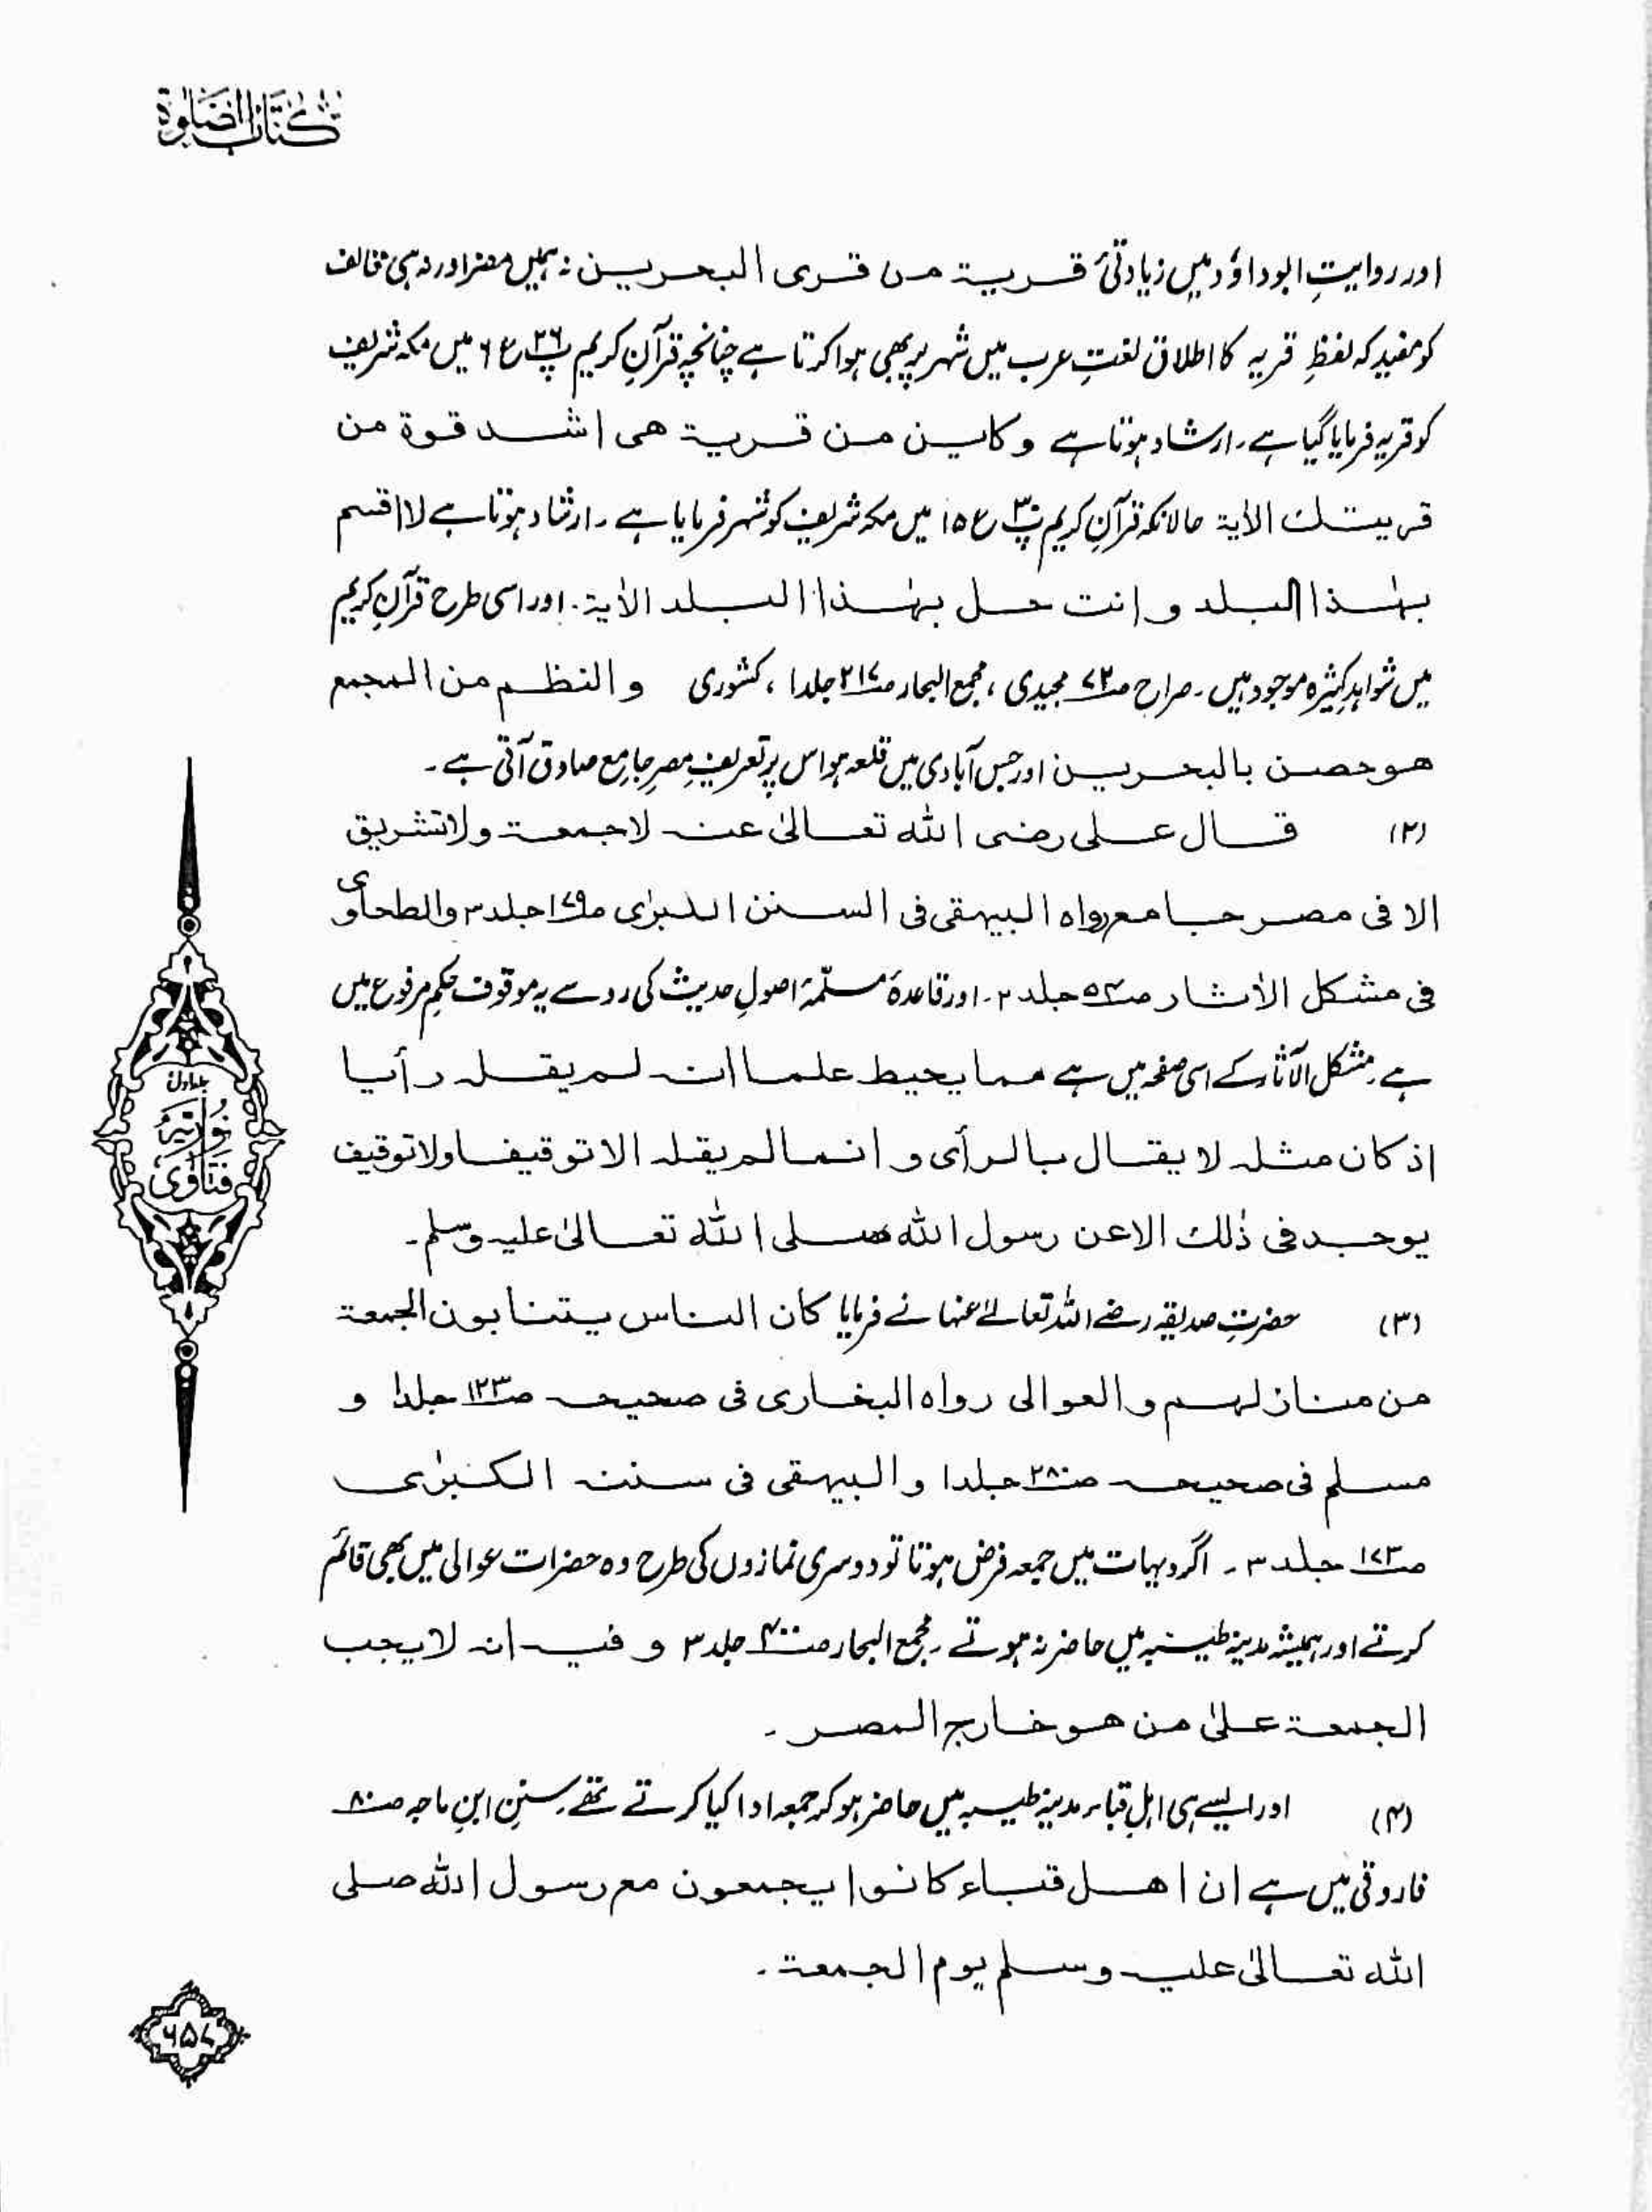 كتاب الصلوة
اور روایتِ ابوداؤد میں زیادتیٔ قرية من قرى البحرين نہ ہمیں مضر اور نہ ہی مخالف
کو مفید کہ لفظِ قریہ کا اطلاق لغتِ عرب میں شہر پر بھی ہوا کرتا ہے چنانچہ قرآنِ کریم پ۲۶ ع ۶ میں مکہ شریف
کو قریہ فرمایا گیا ہے۔ ارشاد ہوتا ہے وكاين من قرية هى اشد قوة من
قريتك الأية حالانکہ قرآنِ کریم پ۳۰ ع ۱۵ میں مکہ شریف کو شہر فرمایا ہے۔ ارشاد ہوتا ہے لا اقسم
بهٰذا البلد وانت حل بهٰذا البلد الأية۔ اور اسی طرح قرآنِ کریم
میں شواہدِ کثیرہ موجود ہیں۔ صراح ص۷۲ مجیدی ، مجمع البحار ص۲۱۷ جلد۱ ، کشوری والنظم من المجمع
هو حصن بالبحرين اور جس آبادی میں قلعہ ہو اس پر تعریفِ مصرِ جامع صادق آتی ہے۔
(۲) قال على رضى الله تعالىٰ عنه لاجمعة ولاتشريق
الا فى مصر جامع رواه البيهقى فى السنن الكبرٰى ص۱۷۹ جلد۳ والطحاوى
فى مشكل الأثار ص۵۴ جلد ۲۔ اور قاعدۂ مسلّمۂ اصولِ حدیث کی رو سے یہ موقوف حکمِ مرفوع میں
ہے۔ مشکل الآثار کے اسی صفحہ میں ہے مما يحيط علما انه لم يقله رأيا
اذ كان مثله لا يقال بالرأى وانما لم يقله الا توقيفا ولا توقيف
يوجد فى ذٰلك الا عن رسول الله صلى الله تعالىٰ عليه وسلم۔
(۳) حضرتِ صدیقہ رضی اللہ تعالےٰ عنہا نے فرمایا كان الناس يتنابون الجمعة
من منازلهم والعوالى رواه البخارى فى صحيحه ص۱۲۳ جلد۱ و
مسلم فى صحيحه ص۲۸۰ جلد۱ والبيهقى فى سننه الكبرٰى
ص۱۷۳ جلد ۳۔ اگر دیہات میں جمعہ فرض ہوتا تو دوسری نمازوں کی طرح وہ حضرات عوالی میں بھی قائم
کرتے اور ہمیشہ مدینہ طیبہ میں حاضر نہ ہوتے۔ مجمع البحار ص۴۰۰ جلد ۳ و فيه انه لا يجب
الجمعة علىٰ من هو خارج المصر۔
(۴) اور ایسے ہی اہلِ قباء مدینہ طیبہ میں حاضر ہو کر جمعہ ادا کیا کرتے تھے۔ سننِ ابنِ ماجہ ص۸۰
فاروقی میں ہے ان اهل قباء كانوا يجمعون مع رسول الله صلى
الله تعالىٰ عليه وسلم يوم الجمعة۔
جلد اول
نوریہ
فتاوی
۶۵۷